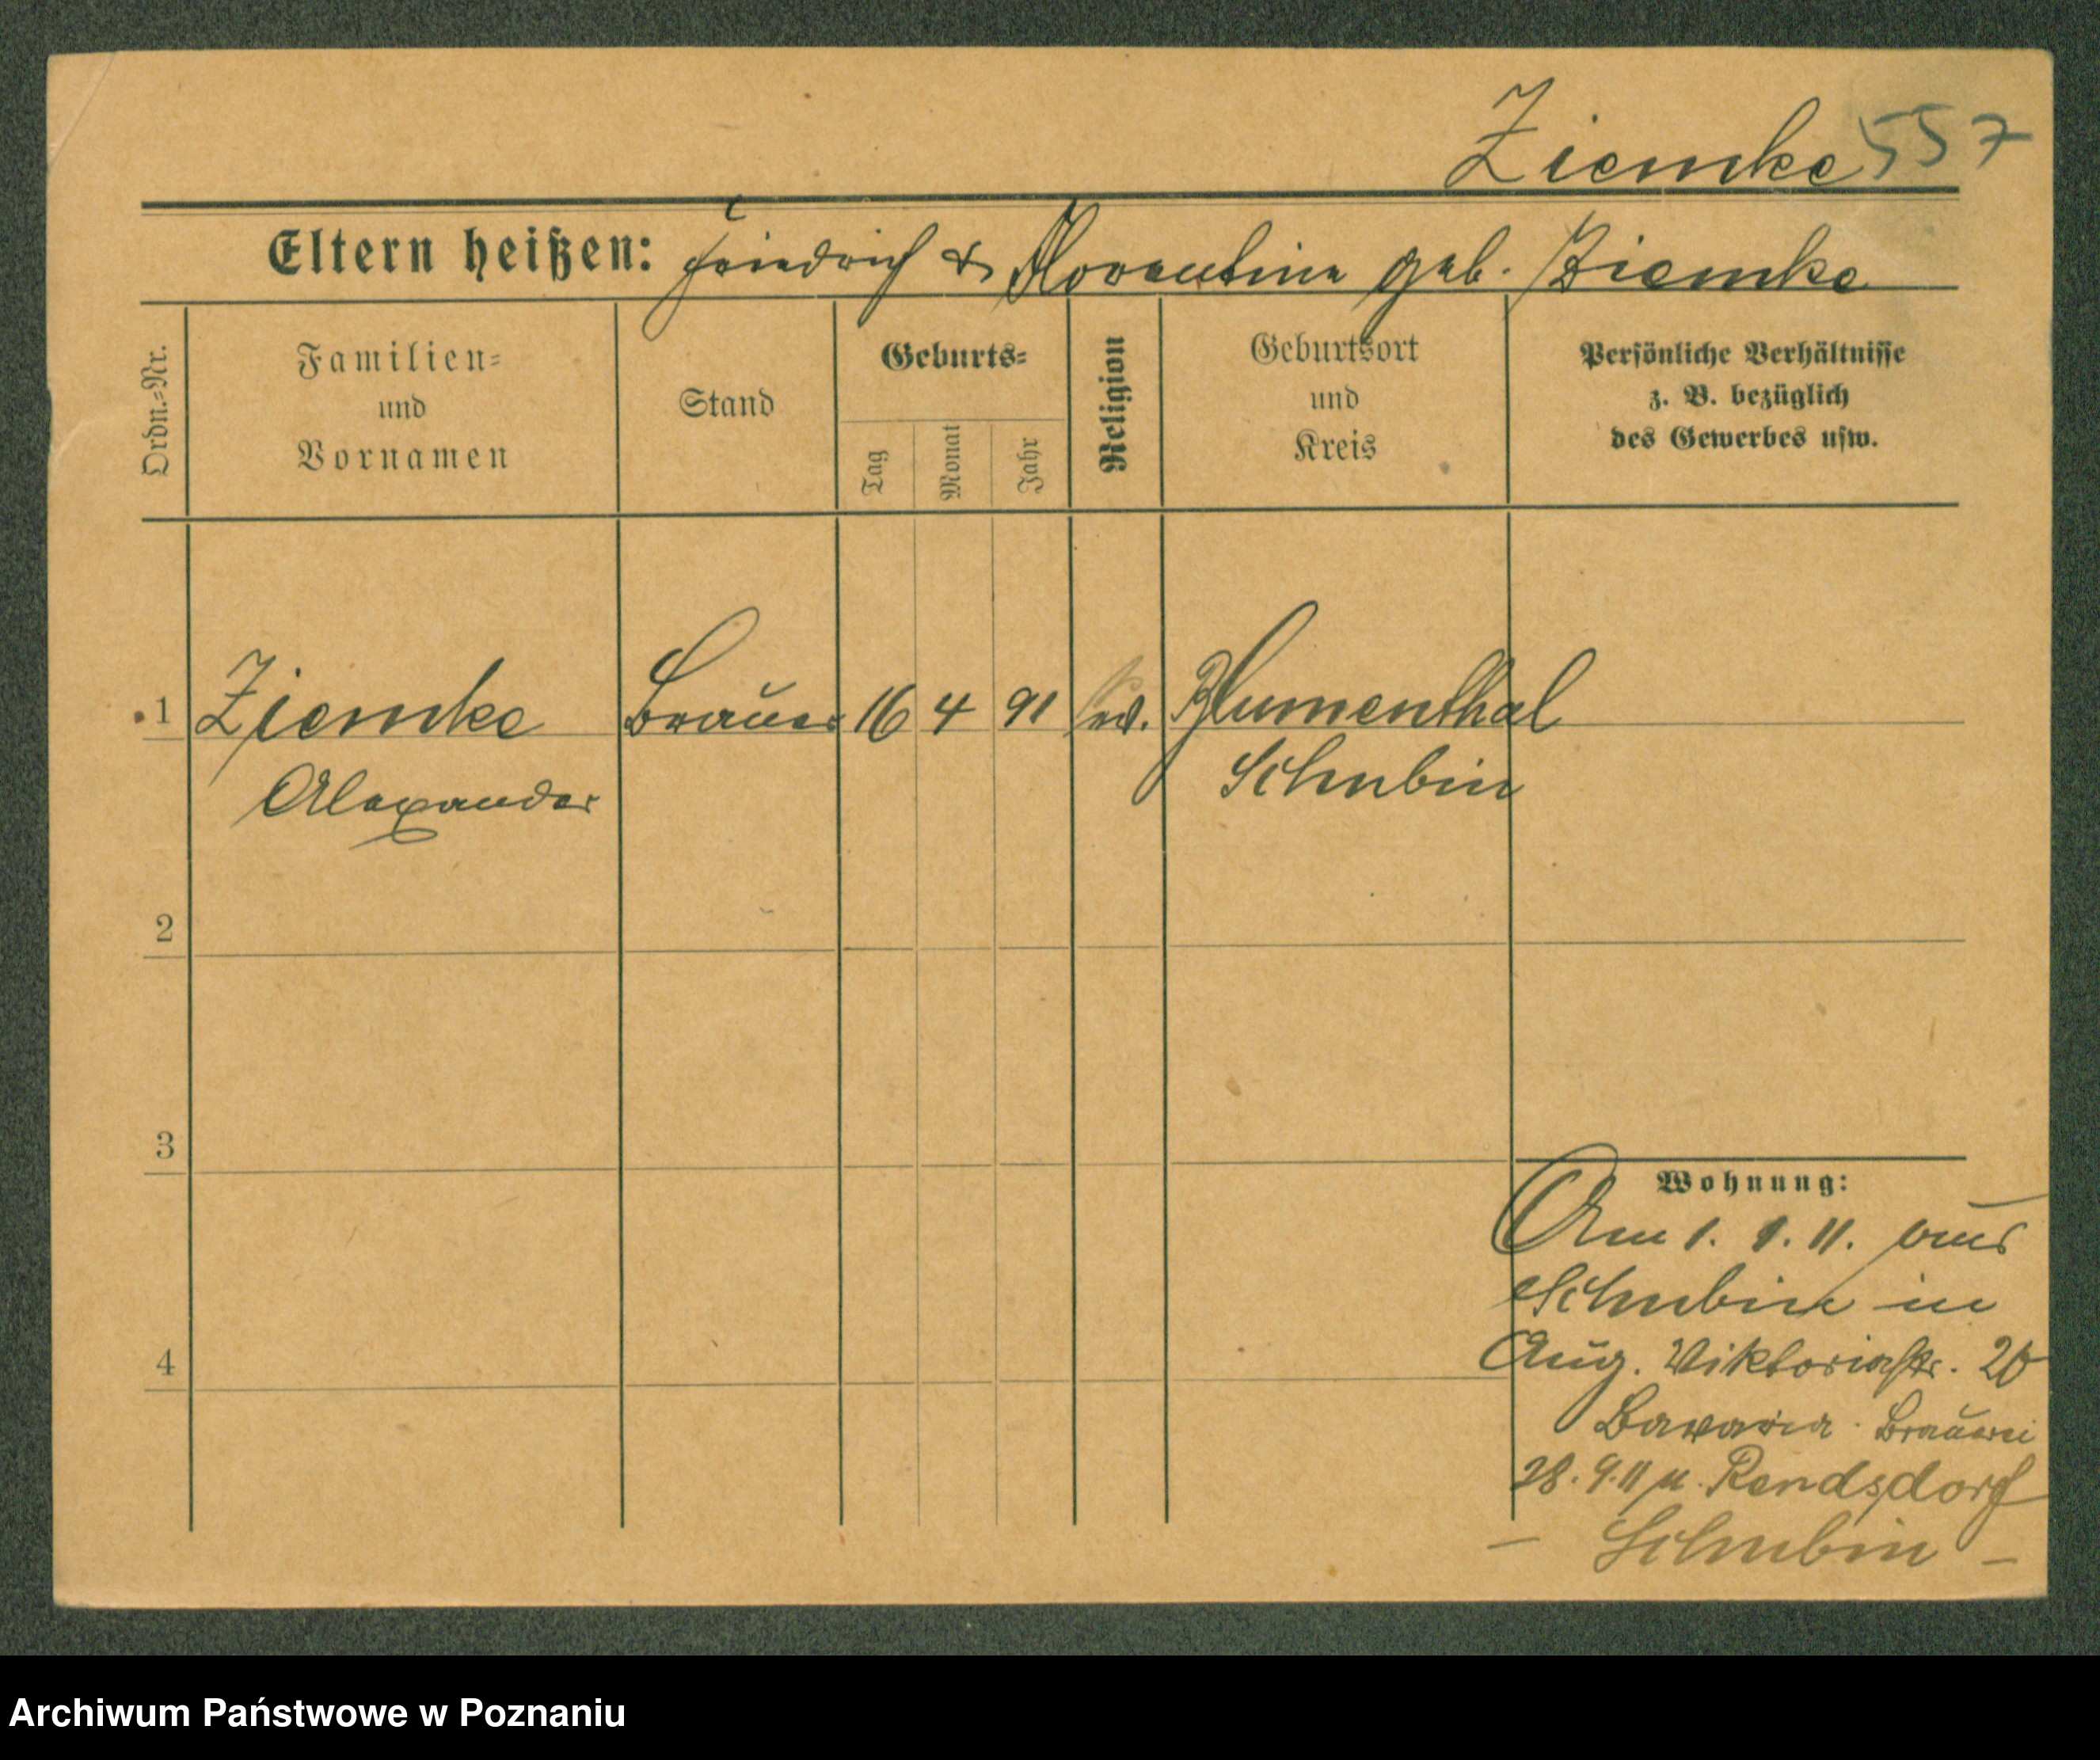 Ziemke 557
Eltern heißen: Friedrich & Florentine geb. Ziemke
Ordn.-Nr.
Familien-
und
Vornamen
Stand
Geburts-
Tag
Monat
Jahr
Religion
Geburtsort
und
Kreis
Persönliche Verhältnisse
z. B. bezüglich
des Gewerbes usw.
1 Ziemke Brauer 16 4 91 ev. Blumenthal
Alexander Schubin
2
3
4
Wohnung:
Am 1. 1. 11. aus
Schubin in
Aug. Viktoriastr. 20
Bavaria Brauerei
28. 9. 11 n. Rendsdorf
- Schubin -
Archiwum Państwowe w Poznaniu